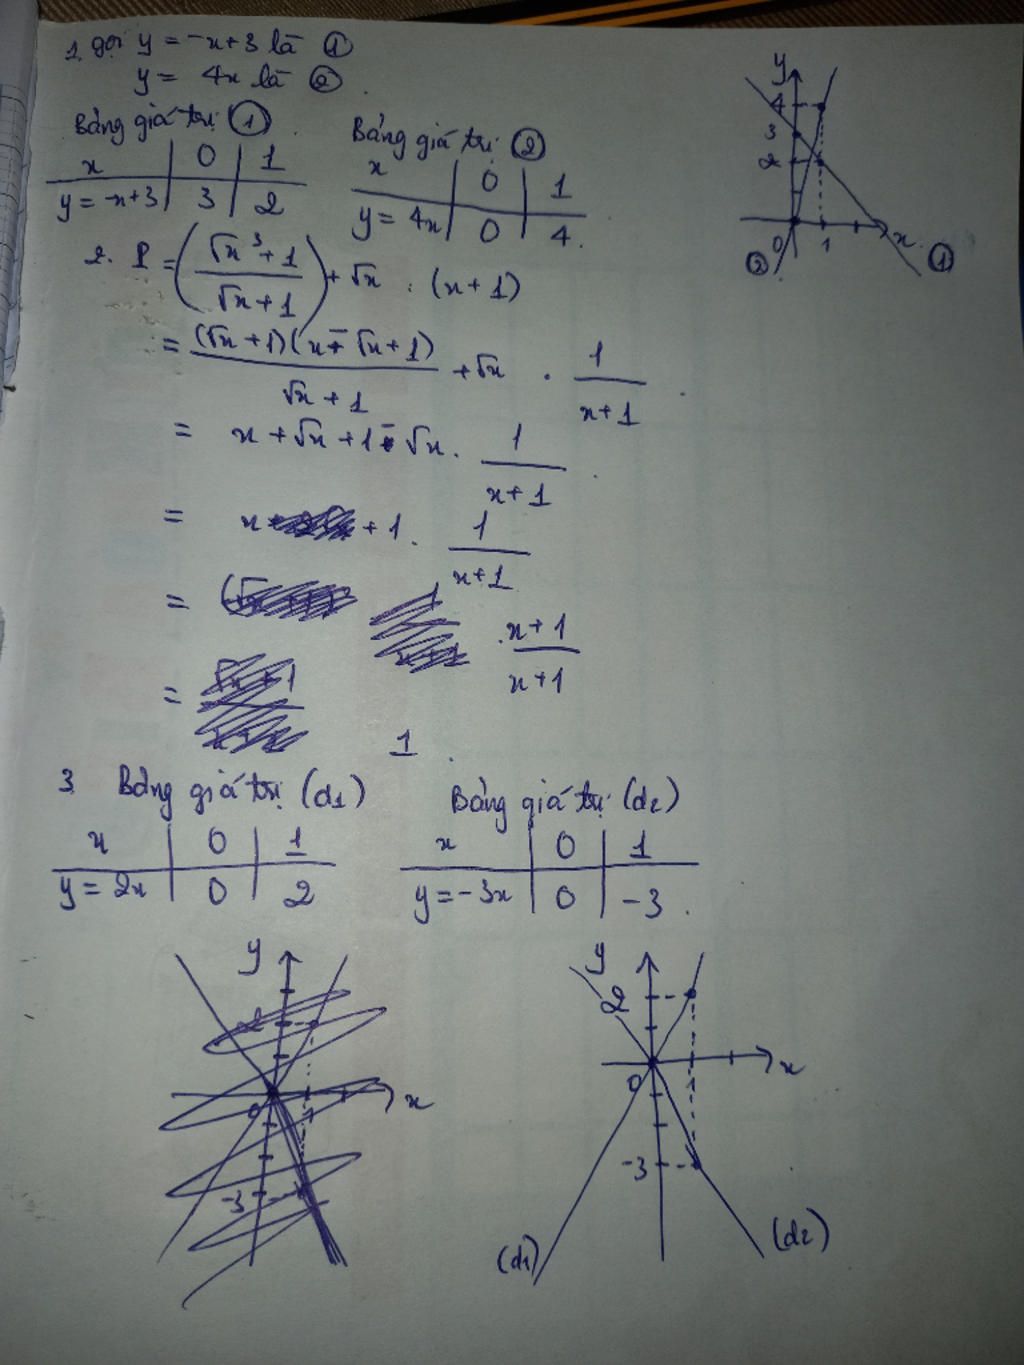 1. gọi y = -x+3 là ①
y = 4x là ②
Bảng giá trị ①
x | 0 | 1
y = -x+3 | 3 | 2
Bảng giá trị ②
x | 0 | 1
y = 4x | 0 | 4.
y
4
3
2
0 1 x
② ①
2. P = (√x³+1 / √x+1) + √x : (x+1)
= (√x+1)(x-√x+1) / √x+1 + √x . 1 / x+1
= x+√x+1-√x . 1 / x+1
= x +1 . 1 / x+1
= x+1 / x+1
= 1
3. Bảng giá trị (d1)
x | 0 | 1
y = 2x | 0 | 2
Bảng giá trị (d2)
x | 0 | 1
y = -3x | 0 | -3.
y
2
0 1 x
-3
y
2
0 x
-3
(d1) (d2)